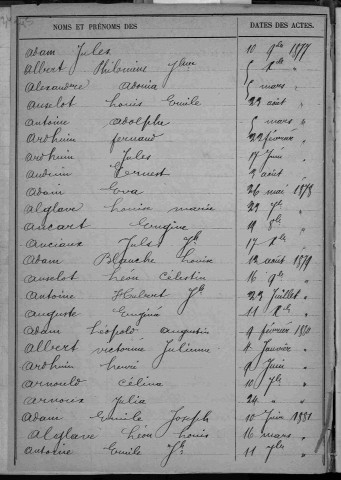 NOMS ET PRÉNOMS DES
DATES DES ACTES.
Adam Jules 10 9bre 1877
Albert Philomène "
Alexandre Adonia 5 mars "
Anselot Louis Emile 22 août "
Antoine Adolphe 5 mars "
Ardhuin fernand 22 février "
Ardhuin Jules 17 Juin "
Ernest 2 août "
Adam Eva 26 mai 1878
Alglave Louise marie 23 "
Ancart Eugène 19 "
Anciaux Jules 17 "
Adam Blanche Louise 12 août 1879
Anselot Léon Célestin 16 "
Antoine Hubert 23 Juillet "
Auguste Eugène 11 "
Adam Léopold Augustin 9 février 1880
Albert victorine Julienne 4 Janvier "
Ardhuin henri 9 Juin "
Arnould Célina 10 "
Arnoux Julia 24 "
Adam Emile Joseph 10 Juin 1881
Alglave Léon Louis 16 mars "
Antoine Emile 11 "